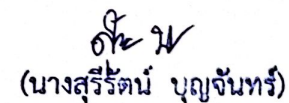 (นางสุรีรัตน์ บุญจันทร์)